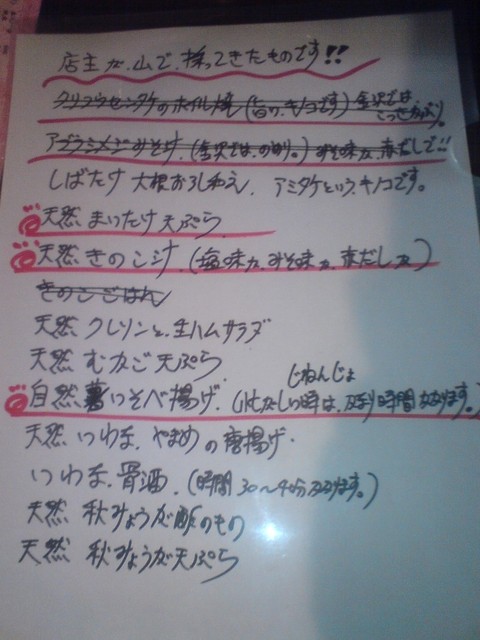 店主が、山で、採ってきたものです!!
クリフウセンタケのホイル焼 (旨い、キノコです) 金沢では
こっさかぶり。
アブラシメジみそ汁、(金沢では、のめり。) みそ味か、赤だしで!!
しばたけ 大根おろし和え、アミタケという、キノコです。
天然 まいたけ 天ぷら
天然 きのこ汁、(塩味か、みそ味か、赤だしか)
きのこごはん
天然 クレソンと、生ハムサラダ
天然 むかご天ぷら
じねんじょ
自然薯いそべ揚げ、(忙がしい時は、時間かかります。)
天然 いわな、やまめの唐揚げ
いわな、骨酒、(時間30〜40分かかります。)
天然 秋みょうが酢のもの
天然 秋みょうが天ぷら